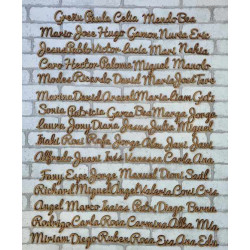 Greru Paula Celia Mando Bea
Mario Jose Hugo Gamon Nuria Eric
Jesus Pablo Victor Lucia Mari Nahia
Caro Hector Paloma Miguel Manolo
Montes Ricardo David Maria José Tart
Marina David Avanel Maria Liam Gutz
Sonia Patricia Garza Bea Marga Jorge
Laura Jony Diana Jesus Julia Miguel
Iñaki Rosi Rafa Jorge Alex Javi Javi
Alfredo Juani Inés Vanessa Carla Ana
Fany Espe Jorge Manu Dioni Saul
Richard Miguel Angel Valeria Cori Cris
Angel Marco Isaias Patri Diego Bruno
Rodrigo Carla Rosa Carmina Alba M
Miriam Diego Ruben Rosa Eva Ana Edu